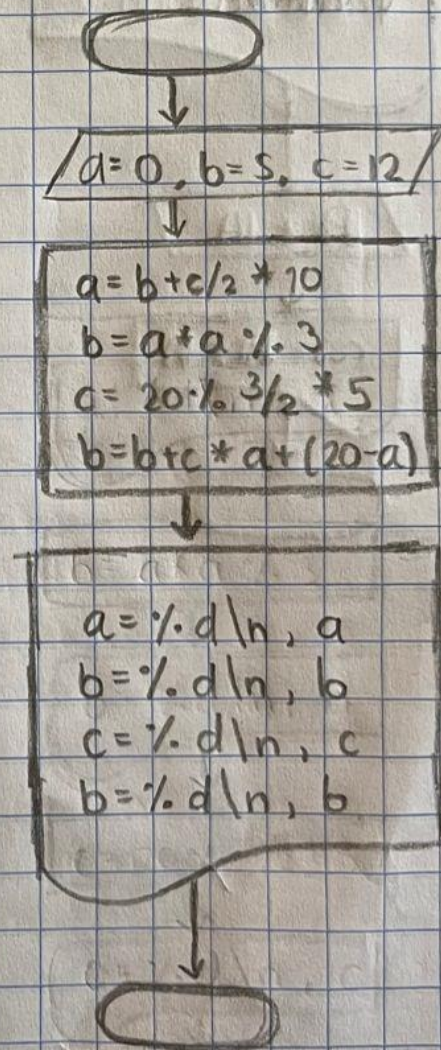 a=0, b=5, c=12
a=b+c/2*10
b=a*a%3
c=20%3/2*5
b=b+c*a+(20-a)
a=%d\n, a
b=%d\n, b
c=%d\n, c
b=%d\n, b